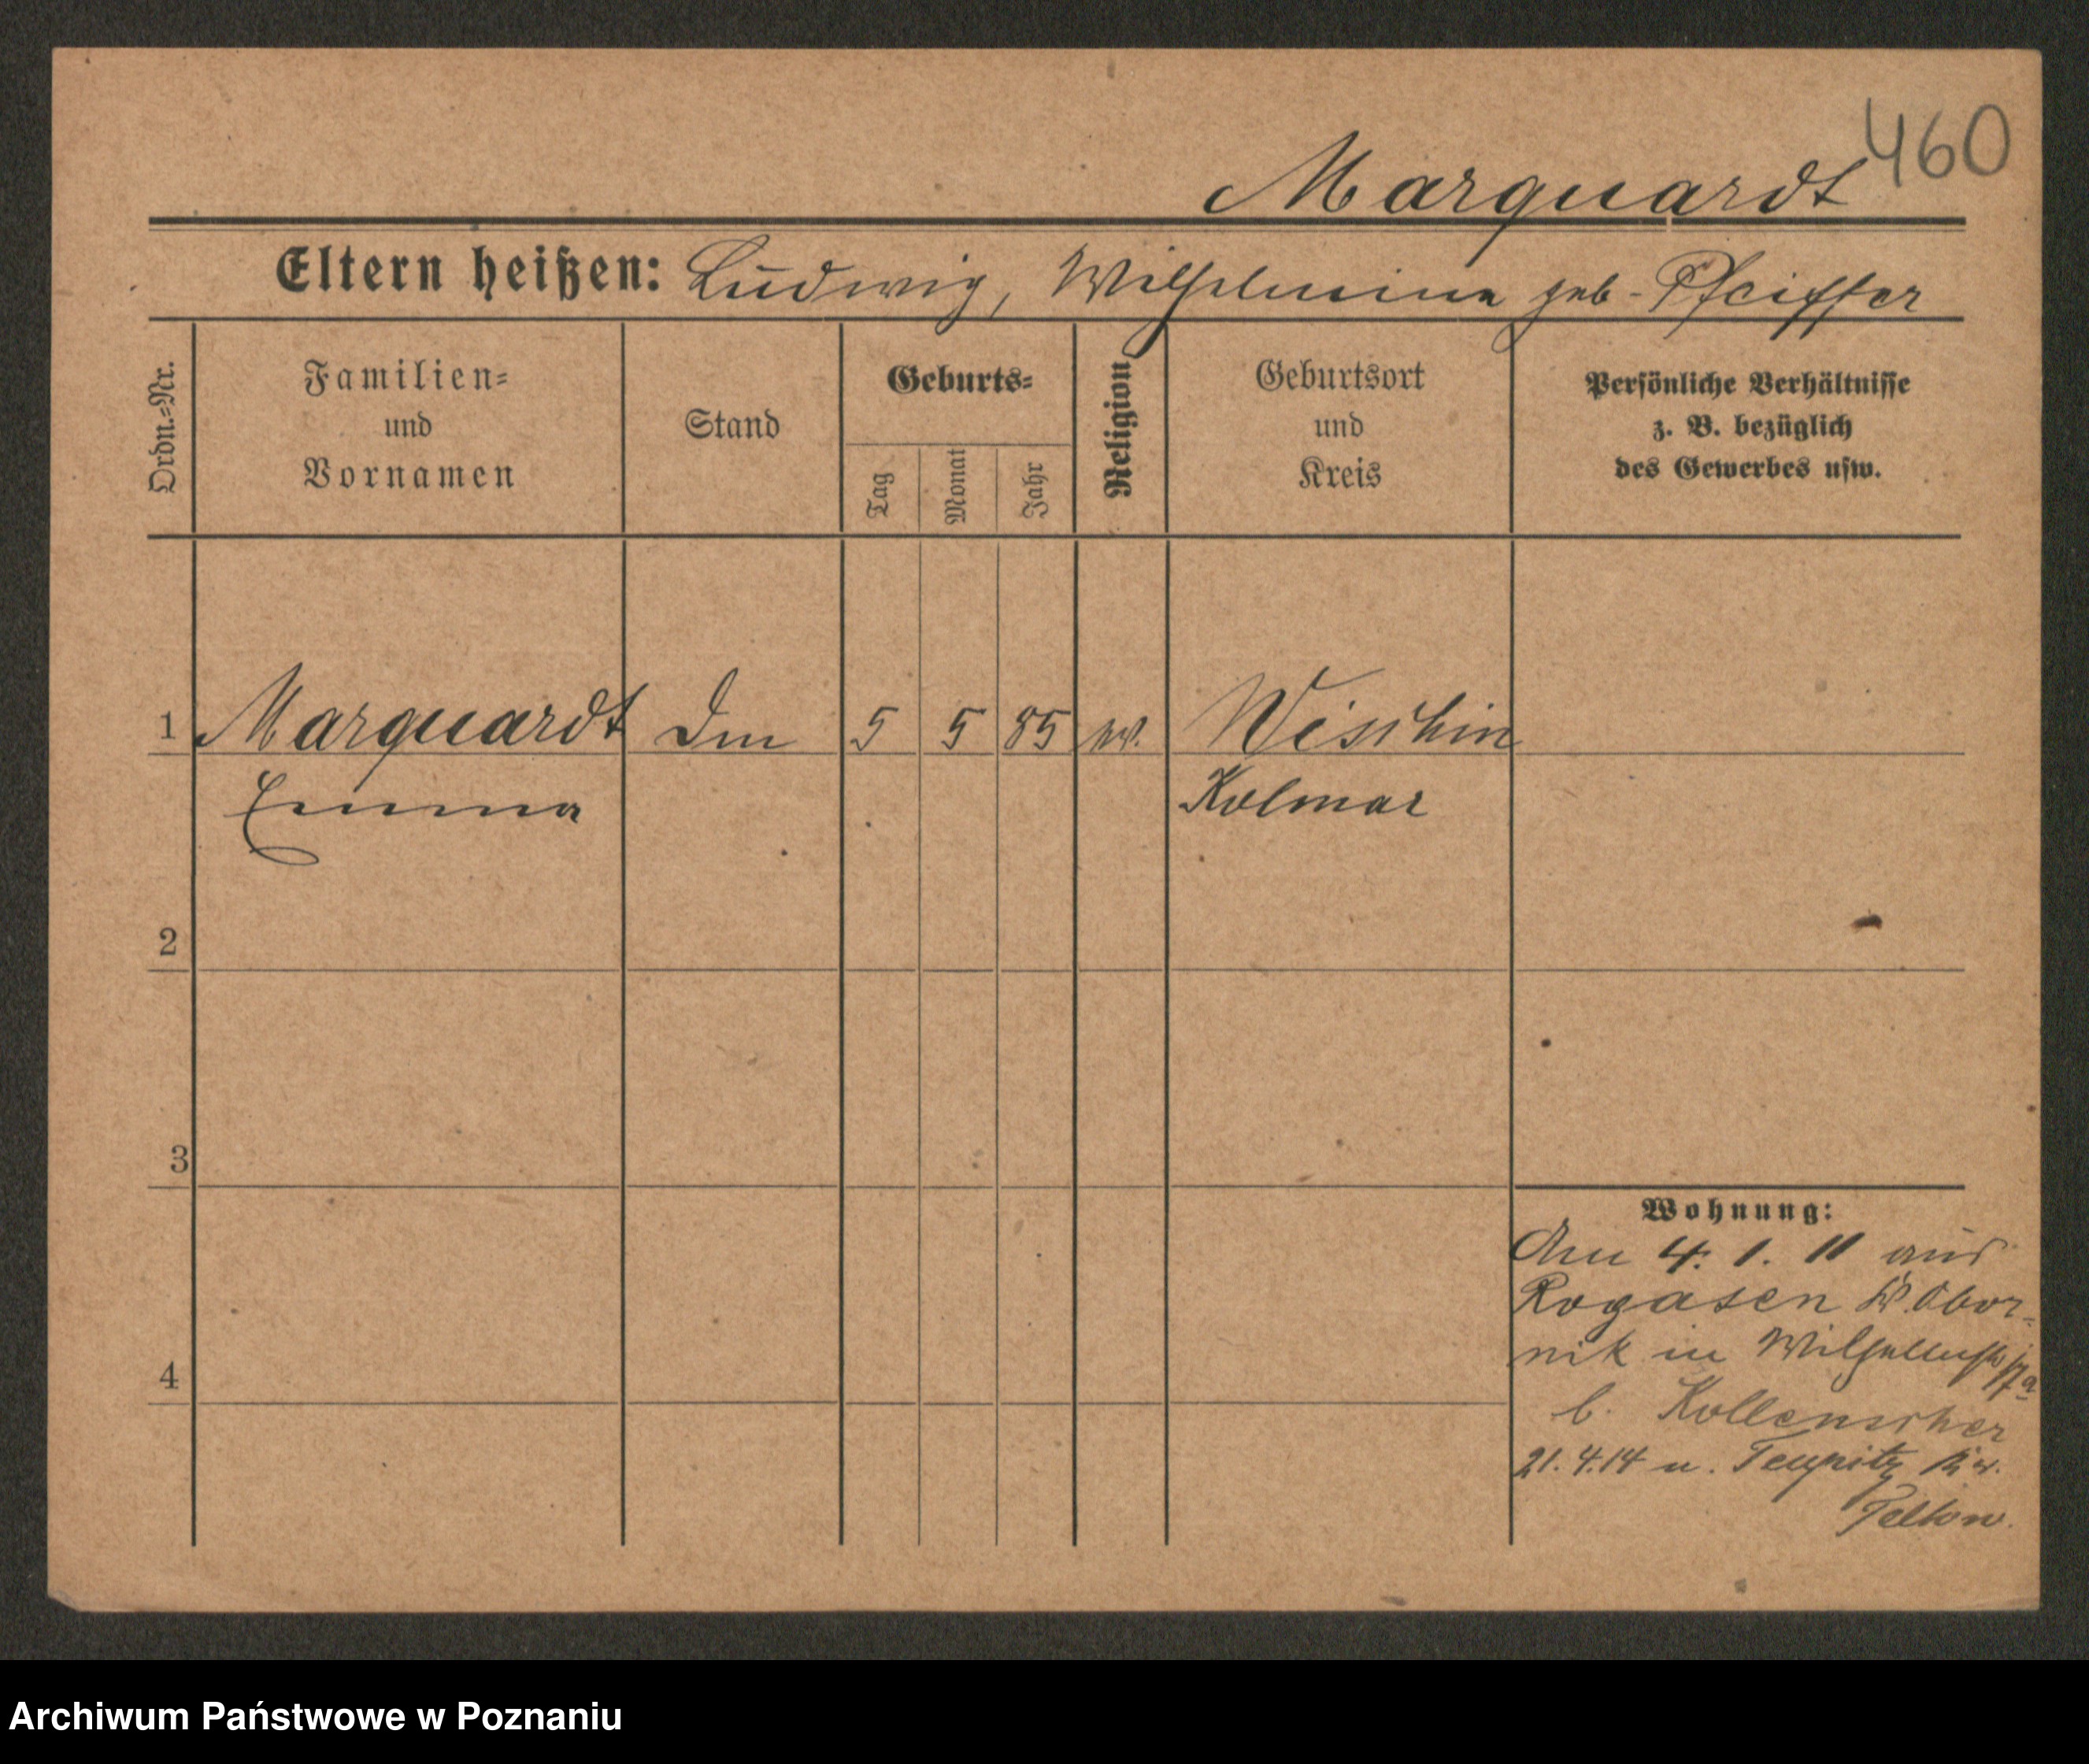 460
Marquardt
Eltern heißen: Ludwig, Wilhelmine geb. Pfeiffer
Ordn.=Nr.
Familien=
und
Vornamen
Stand
Geburts=
Tag
Monat
Jahr
Religion
Geburtsort
und
Kreis
Persönliche Verhältnisse
z. B. bezüglich
des Gewerbes usw.
1 Marquardt 5 5 85 ev. Wischin
Emma Kolmar
2
3
4
Wohnung:
Am 4. 1. 11 aus
Rogasen Kr. Obor-
nik in
b. Kollenscher
21.4.14 n. Teupitz Kr.
Teltow.
Archiwum Państwowe w Poznaniu